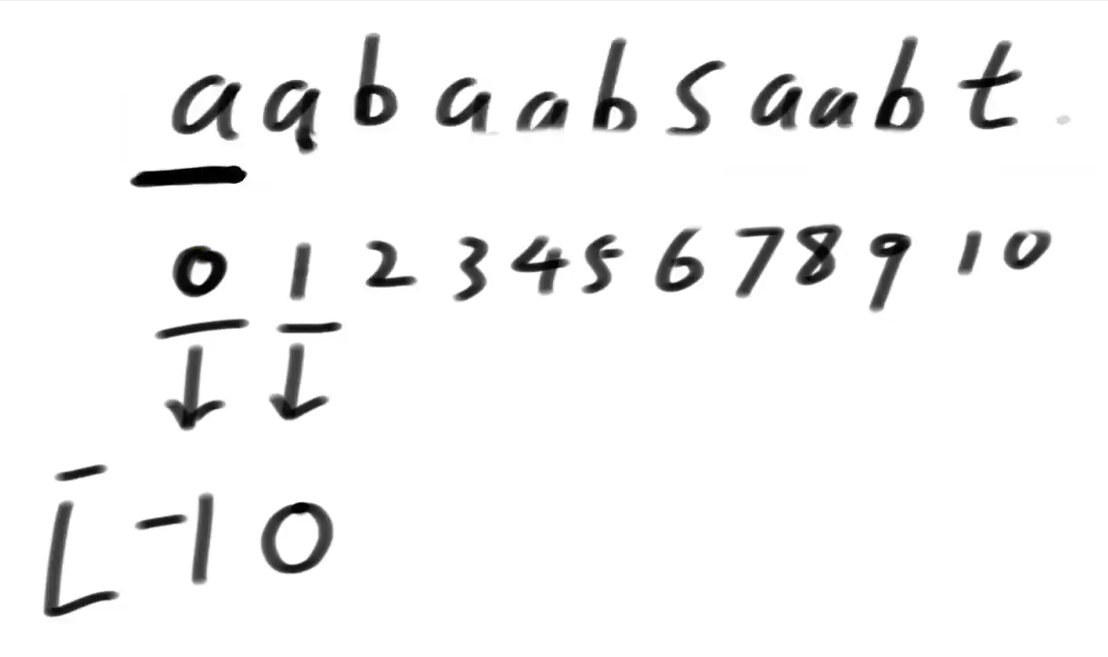 a a b a a b s a a b t
0 1 2 3 4 5 6 7 8 9 10
[ -1 0